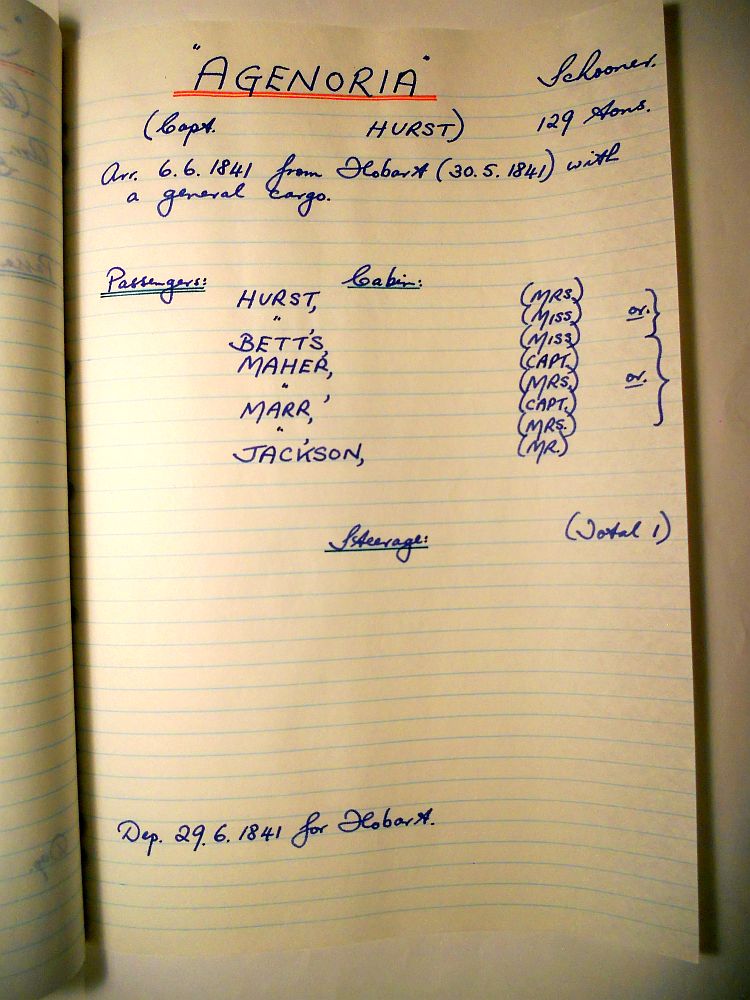 "AGENORIA" Schooner.
(Capt. HURST) 129 tons.
Arr. 6.6.1841 from Hobart (30.5.1841) with
a general cargo.
Passengers: Cabin:
HURST, (MRS.)
" , (MISS) or.
BETTS, (MISS)
MAHER, (CAPT.)
" , (MRS.) or.
MARR, (CAPT.)
" , (MRS.)
JACKSON, (MR.)
Steerage: (Total 1)
Dep. 29.6.1841 for Hobart.